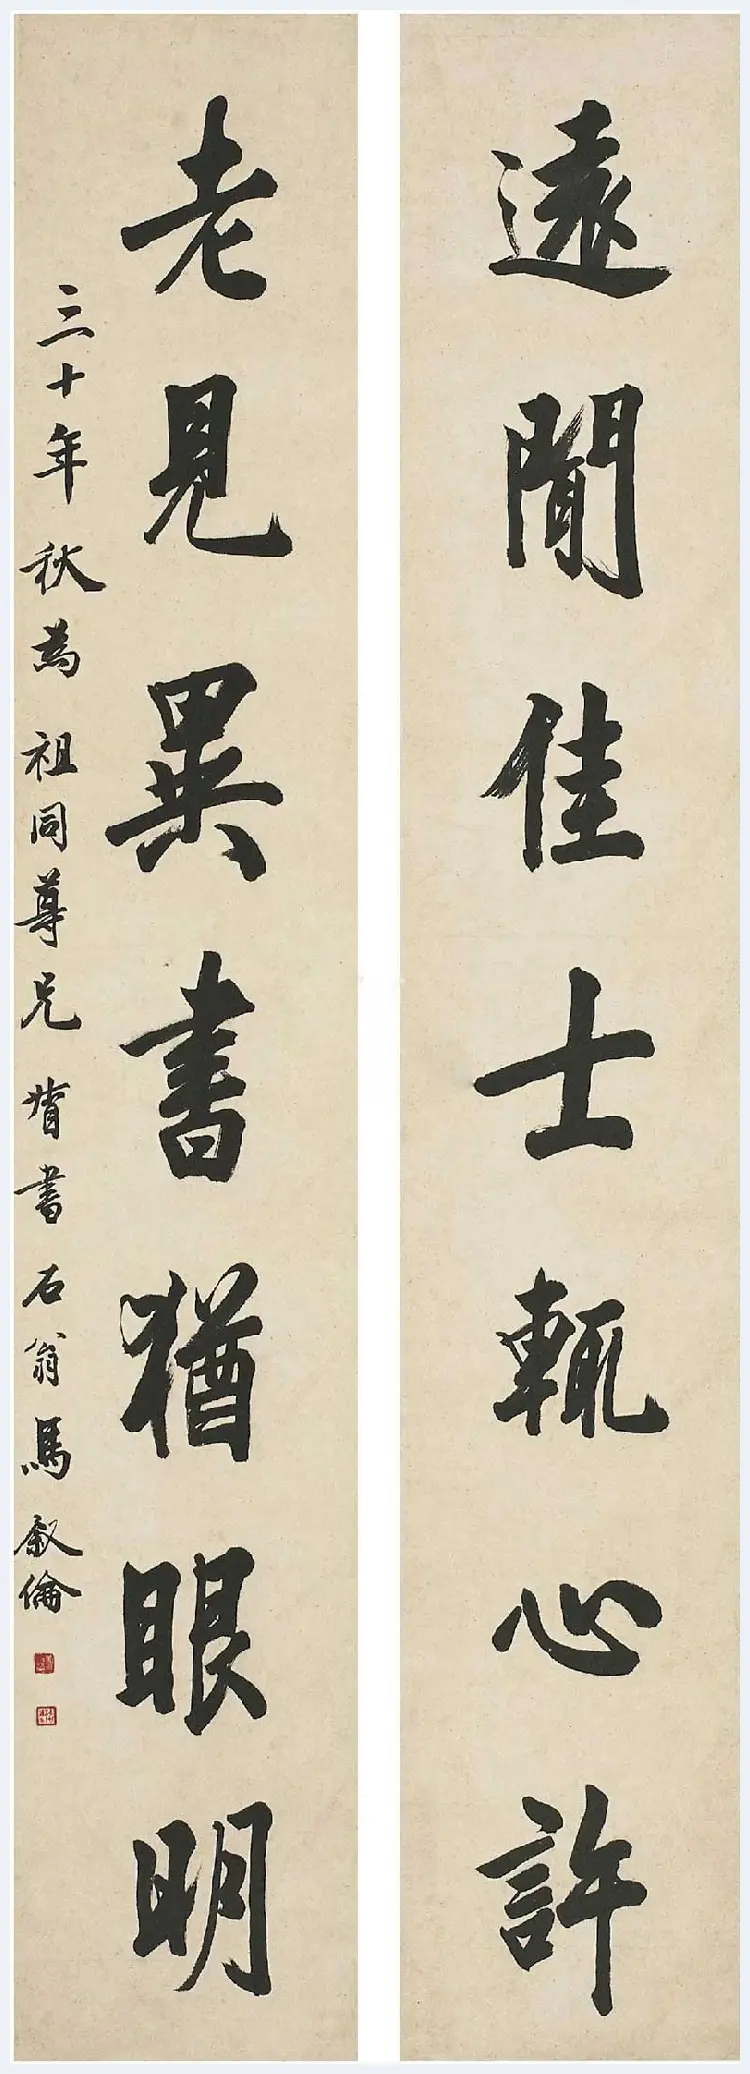 遠聞佳士輒心許
老見異書猶眼明
三十年秋為祖同尊兄屬書石翁馬敘倫